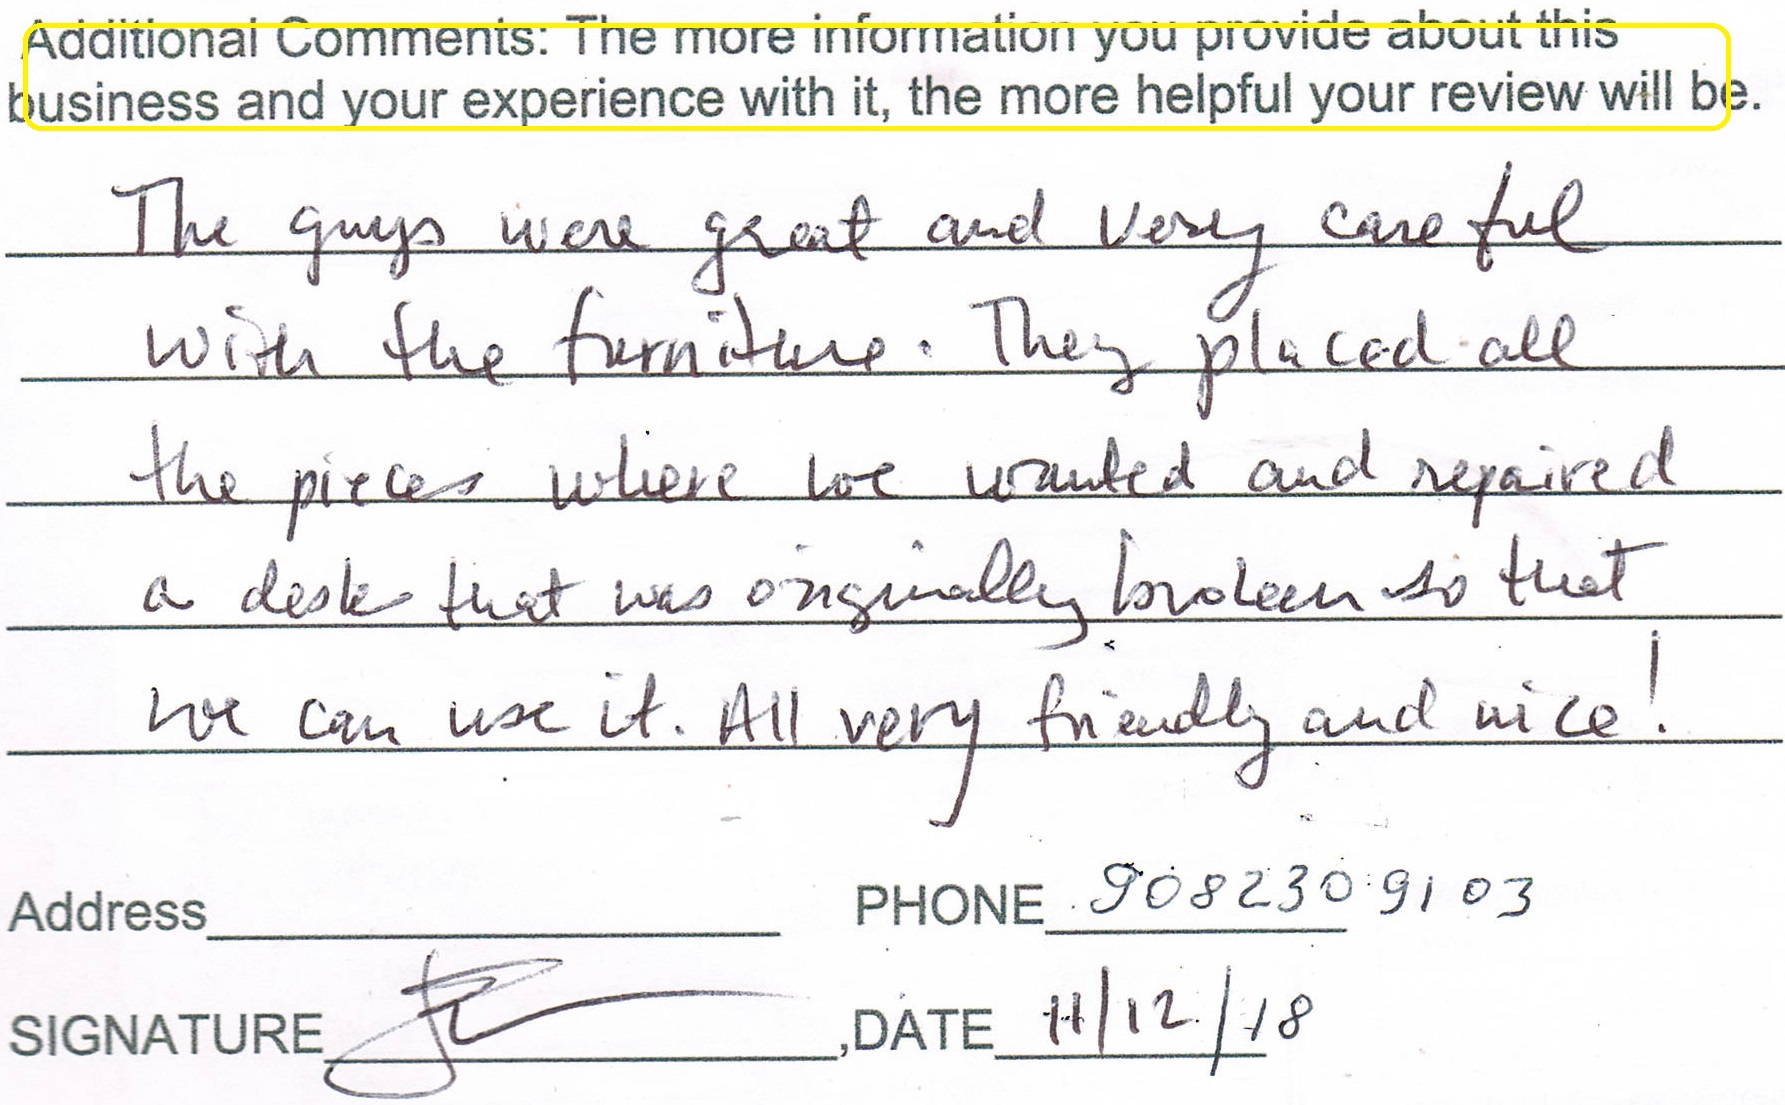 Additional Comments: The more information you provide about this
business and your experience with it, the more helpful your review will be.
The guys were great and very careful
with the furniture. They placed all
the pieces where we wanted and repaired
a desk that was originally broken so that
we can use it. All very friendly and nice!
Address PHONE 908230 9103
SIGNATURE ,DATE 11/12/18